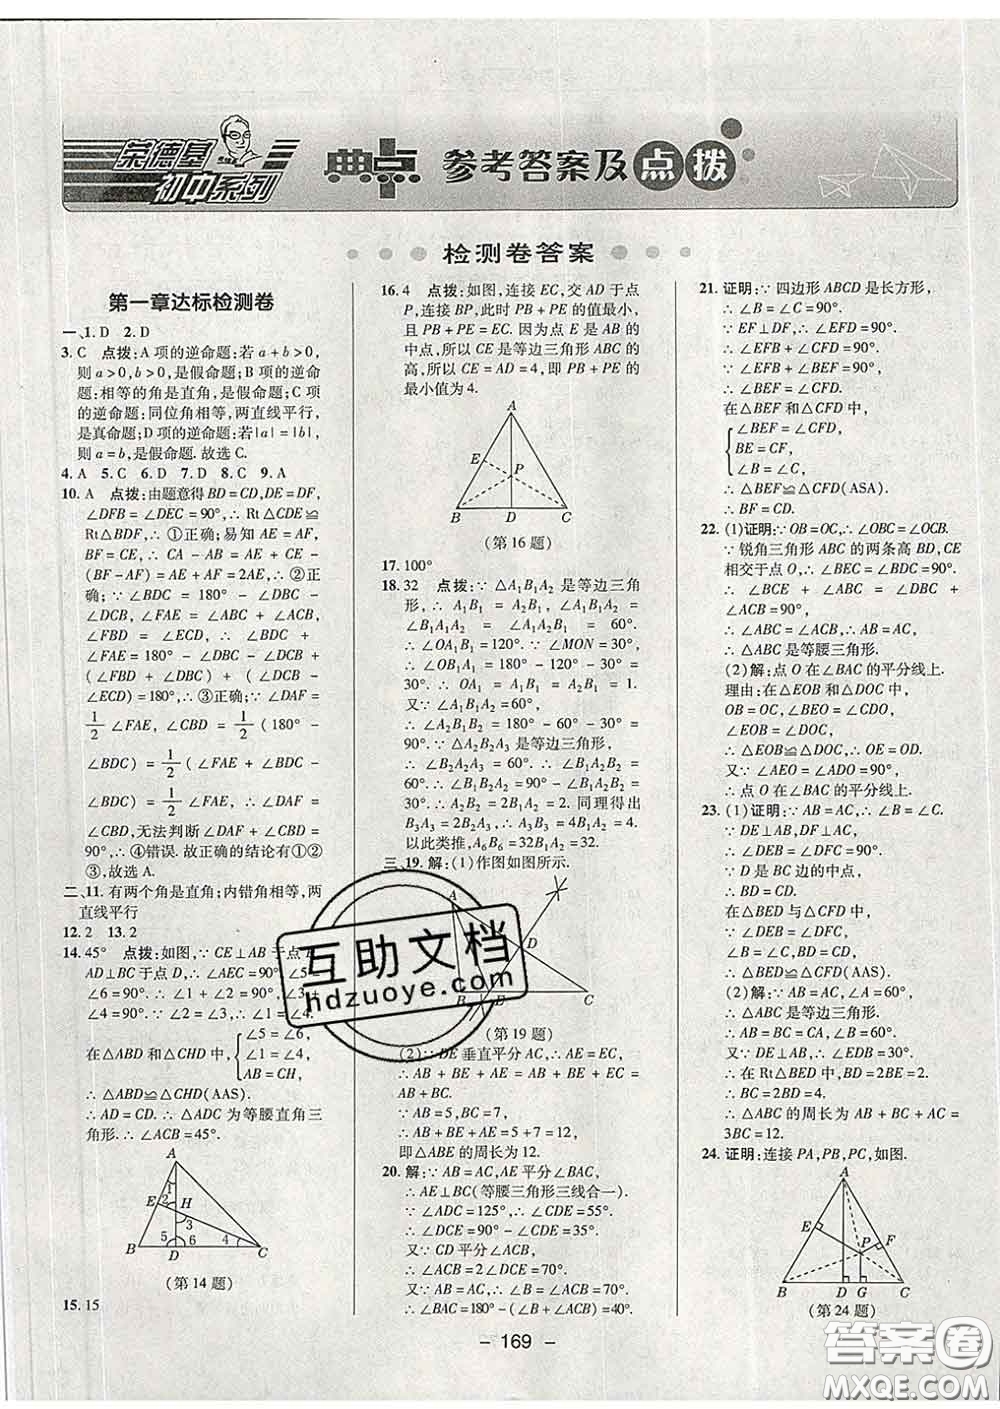 荣德基
初中系列
典点 参考答案及点拨
检测卷答案
第一章达标检测卷
一、1. D 2. D
3. C 点拨:A 项的逆命题:若 a+b>0,
则 a>0,b>0,是假命题;B 项的逆命
题:相等的角是直角,是假命题;C 项
的逆命题:同位角相等,两直线平行,
是真命题;D 项的逆命题:若|a|=|b|,
则 a=b,是假命题. 故选 C.
4. A 5. C 6. D 7. D 8. C 9. A
10. A 点拨:由题意得 BD=CD,DE=DF,
∠DFB=∠DEC=90°,∴Rt△CDE≌
Rt△BDF,∴①正确;易知 AE=AF,
BF=CE,∴CA-AB=AE+CE-
(BF-AF)=AE+AF=2AE,∴②正
确;∵∠BDC=180°-∠DBC-
∠DCB,∠FAE=∠ABC+∠ACB,
∠FBD=∠ECD,∴∠BDC+
∠FAE=180°-∠DBC-∠DCB+
(∠FBD+∠DBC)+(∠DCB-
∠ECD)=180°,∴③正确;∵∠DAF=
1/2∠FAE,∠CBD=1/2(180°-
∠BDC)=1/2(∠FAE+∠BDC-
∠BDC)=1/2∠FAE,∴∠DAF=
∠CBD,无法判断∠DAF+∠CBD=
90°,∴④错误. 故正确的结论有①②
③,故选 A.
二、11. 有两个角是直角;内错角相等,两
直线平行
12. 2 13. 2
14. 45° 点拨:如图,∵CE⊥AB于点E,
AD⊥BC 于点 D,∴∠AEC=90°,∠5=
∠6=90°. ∴∠1+∠2=90°,∠3+
∠4=90°. ∵∠2=∠3,∴∠1=∠4.
在△ABD 和△CHD 中,{∠5=∠6,
∠1=∠4,
AB=CH,
∴△ABD≌△CHD(AAS).
∴AD=CD. ∴△ADC 为等腰直角三
角形. ∴∠ACB=45°.
A
E 1 2 H
3
5 6 4
B D C
(第 14 题)
15. 15
16. 4 点拨:如图,连接 EC,交 AD 于点
P,连接 BP,此时 PB+PE 的值最小,
且 PB+PE=EC. 因为点 E 是 AB 的
中点,所以 CE 是等边三角形 ABC 的
高,所以 CE=AD=4,即 PB+PE 的
最小值为 4.
A
E
P
B D C
(第 16 题)
17. 100°
18. 32 点拨:∵△A₁B₁A₂ 是等边三角
形,∴A₁B₁=A₂B₁,∠A₁B₁A₂=
∠B₁A₁A₂=∠A₁A₂B₁=60°.
∴∠OA₁B₁=120°. ∵∠MON=30°,
∴∠OB₁A₁=180°-120°-30°=
30°. ∴OA₁=A₁B₁=A₂B₁=1.
又∵∠A₁B₁A₂=60°,
∴∠A₂B₁B₂=180°-60°-30°=
90°. ∵△A₂B₂A₃ 是等边三角形,
∴∠A₂B₂A₃=60°. ∴∠A₂B₂B₁=
30°. ∴A₂B₂=2B₁A₂=2. 同理得出
B₃A₃=2B₂A₃,∴A₃B₃=4B₁A₂=4.
以此类推,A₆B₆=32B₁A₂=32.
三、19. 解:(1)作图如图所示.
A
D
B E C
(第 19 题)
(2)∵DE 垂直平分 AC,∴AE=EC,
∴AB+BE+AE=AB+BE+EC=
AB+BC.
∵AB=5,BC=7,
∴AB+BE+AE=5+7=12,
即△ABE 的周长为 12.
20. 解:∵AB=AC,AE平分∠BAC,
∴AE⊥BC(等腰三角形三线合一).
∵∠ADC=125°,∴∠CDE=55°.
∴∠DCE=90°-∠CDE=35°.
又∵CD 平分∠ACB,
∴∠ACB=2∠DCE=70°.
又∵AB=AC,∴∠B=∠ACB=70°,
∴∠BAC=180°-(∠B+∠ACB)=40°.
21. 证明:∵四边形 ABCD 是长方形,
∴∠B=∠C=90°.
∵EF⊥DF,∴∠EFD=90°.
∴∠EFB+∠CFD=90°.
∵∠EFB+∠BEF=90°,
∴∠BEF=∠CFD.
在△BEF 和△CFD 中,
{∠BEF=∠CFD,
BE=CF,
∠B=∠C,
∴△BEF≌△CFD(ASA).
∴BF=CD.
22. (1)证明:∵OB=OC,∴∠OBC=∠OCB.
∵锐角三角形 ABC 的两条高 BD,CE
相交于点 O,∴∠BEC=∠BDC=90°.
∵∠BCE+∠ABC=∠DBC+
∠ACB=90°,
∴∠ABC=∠ACB,∴AB=AC,
∴△ABC 是等腰三角形.
(2)解:点 O 在∠BAC 的平分线上.
理由:在△EOB 和△DOC 中,
OB=OC,∠BEO=∠CDO,
∠EOB=∠DOC,
∴△EOB≌△DOC,∴OE=OD.
又∵∠AEO=∠ADO=90°,
∴点 O 在∠BAC 的平分线上.
23. (1)证明:∵AB=AC,∴∠B=∠C.
∵DE⊥AB,DF⊥AC,
∴∠DEB=∠DFC=90°.
∵D 是 BC 边的中点,
∴BD=CD.
在△BED 与△CFD 中,
∵∠DEB=∠DFC,
∠B=∠C,BD=CD,
∴△BED≌△CFD(AAS).
(2)解:∵AB=AC,∠A=60°,
∴△ABC 是等边三角形.
∴AB=BC=CA,∠B=60°.
又∵DE⊥AB,∴∠EDB=30°.
∴在 Rt△BED 中,BD=2BE=2.
∴BC=2BD=4.
∴△ABC 的周长为 AB+BC+AC=
3BC=12.
24. 证明:连接 PA,PB,PC,如图.
A
E F
P
B D G C
(第 24 题)
- 169 -
互助文档
hdzuoye.com
答案圈
MXQE.COM